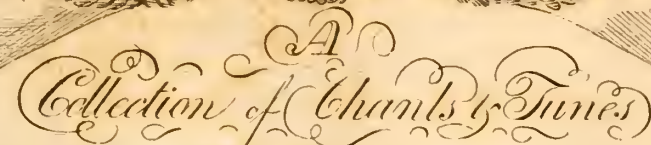 A
Collection of Chants & Tunes